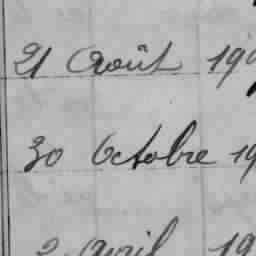 21 Août 19
30 Octobre 19
2 avril 19